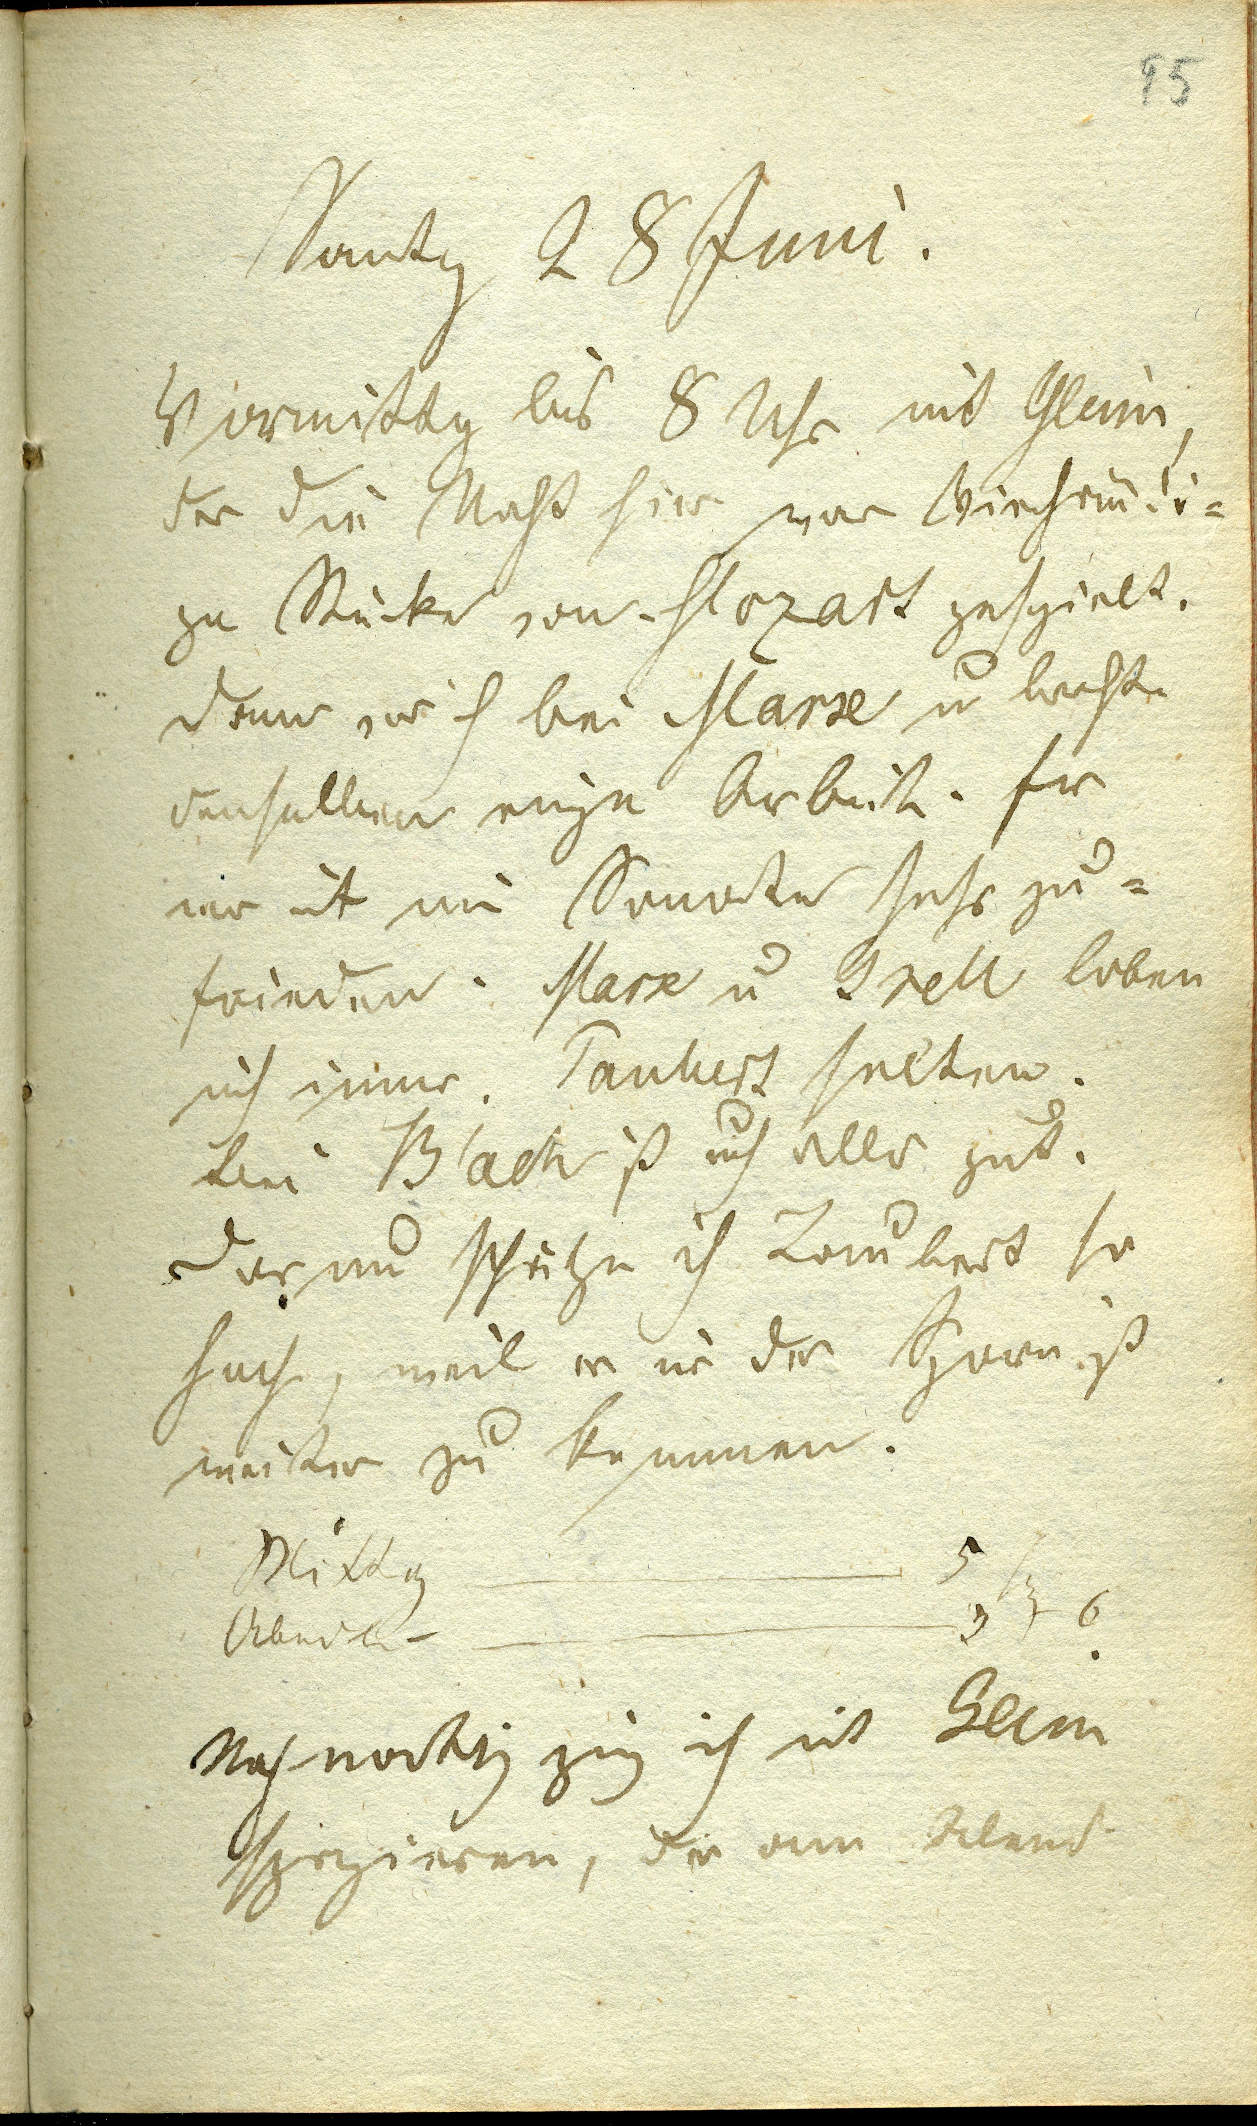 95
Sontg 28 Juni.
Vormittg bis 8 Uhr mit Gleim,
der die Nacht hier war vierhändi-
ge Stücke von Mozart gespielt.
Dann war ich bei Marx u brachte
denselben einige Arbeiten. Er
war mit mr Sonate sehr zu-
frieden. Marx u Grell loben
mich immer. Taubert selten.
Bei Bach ist auch alles gut.
Darum schätze ich Taubert so
hoch, weil er mir der Sporn ist
weiter zu kommen.
Mittg — 5
Abends — 3 6
Nachmittg ging ich mit Gleim
spazieren, der am Abend